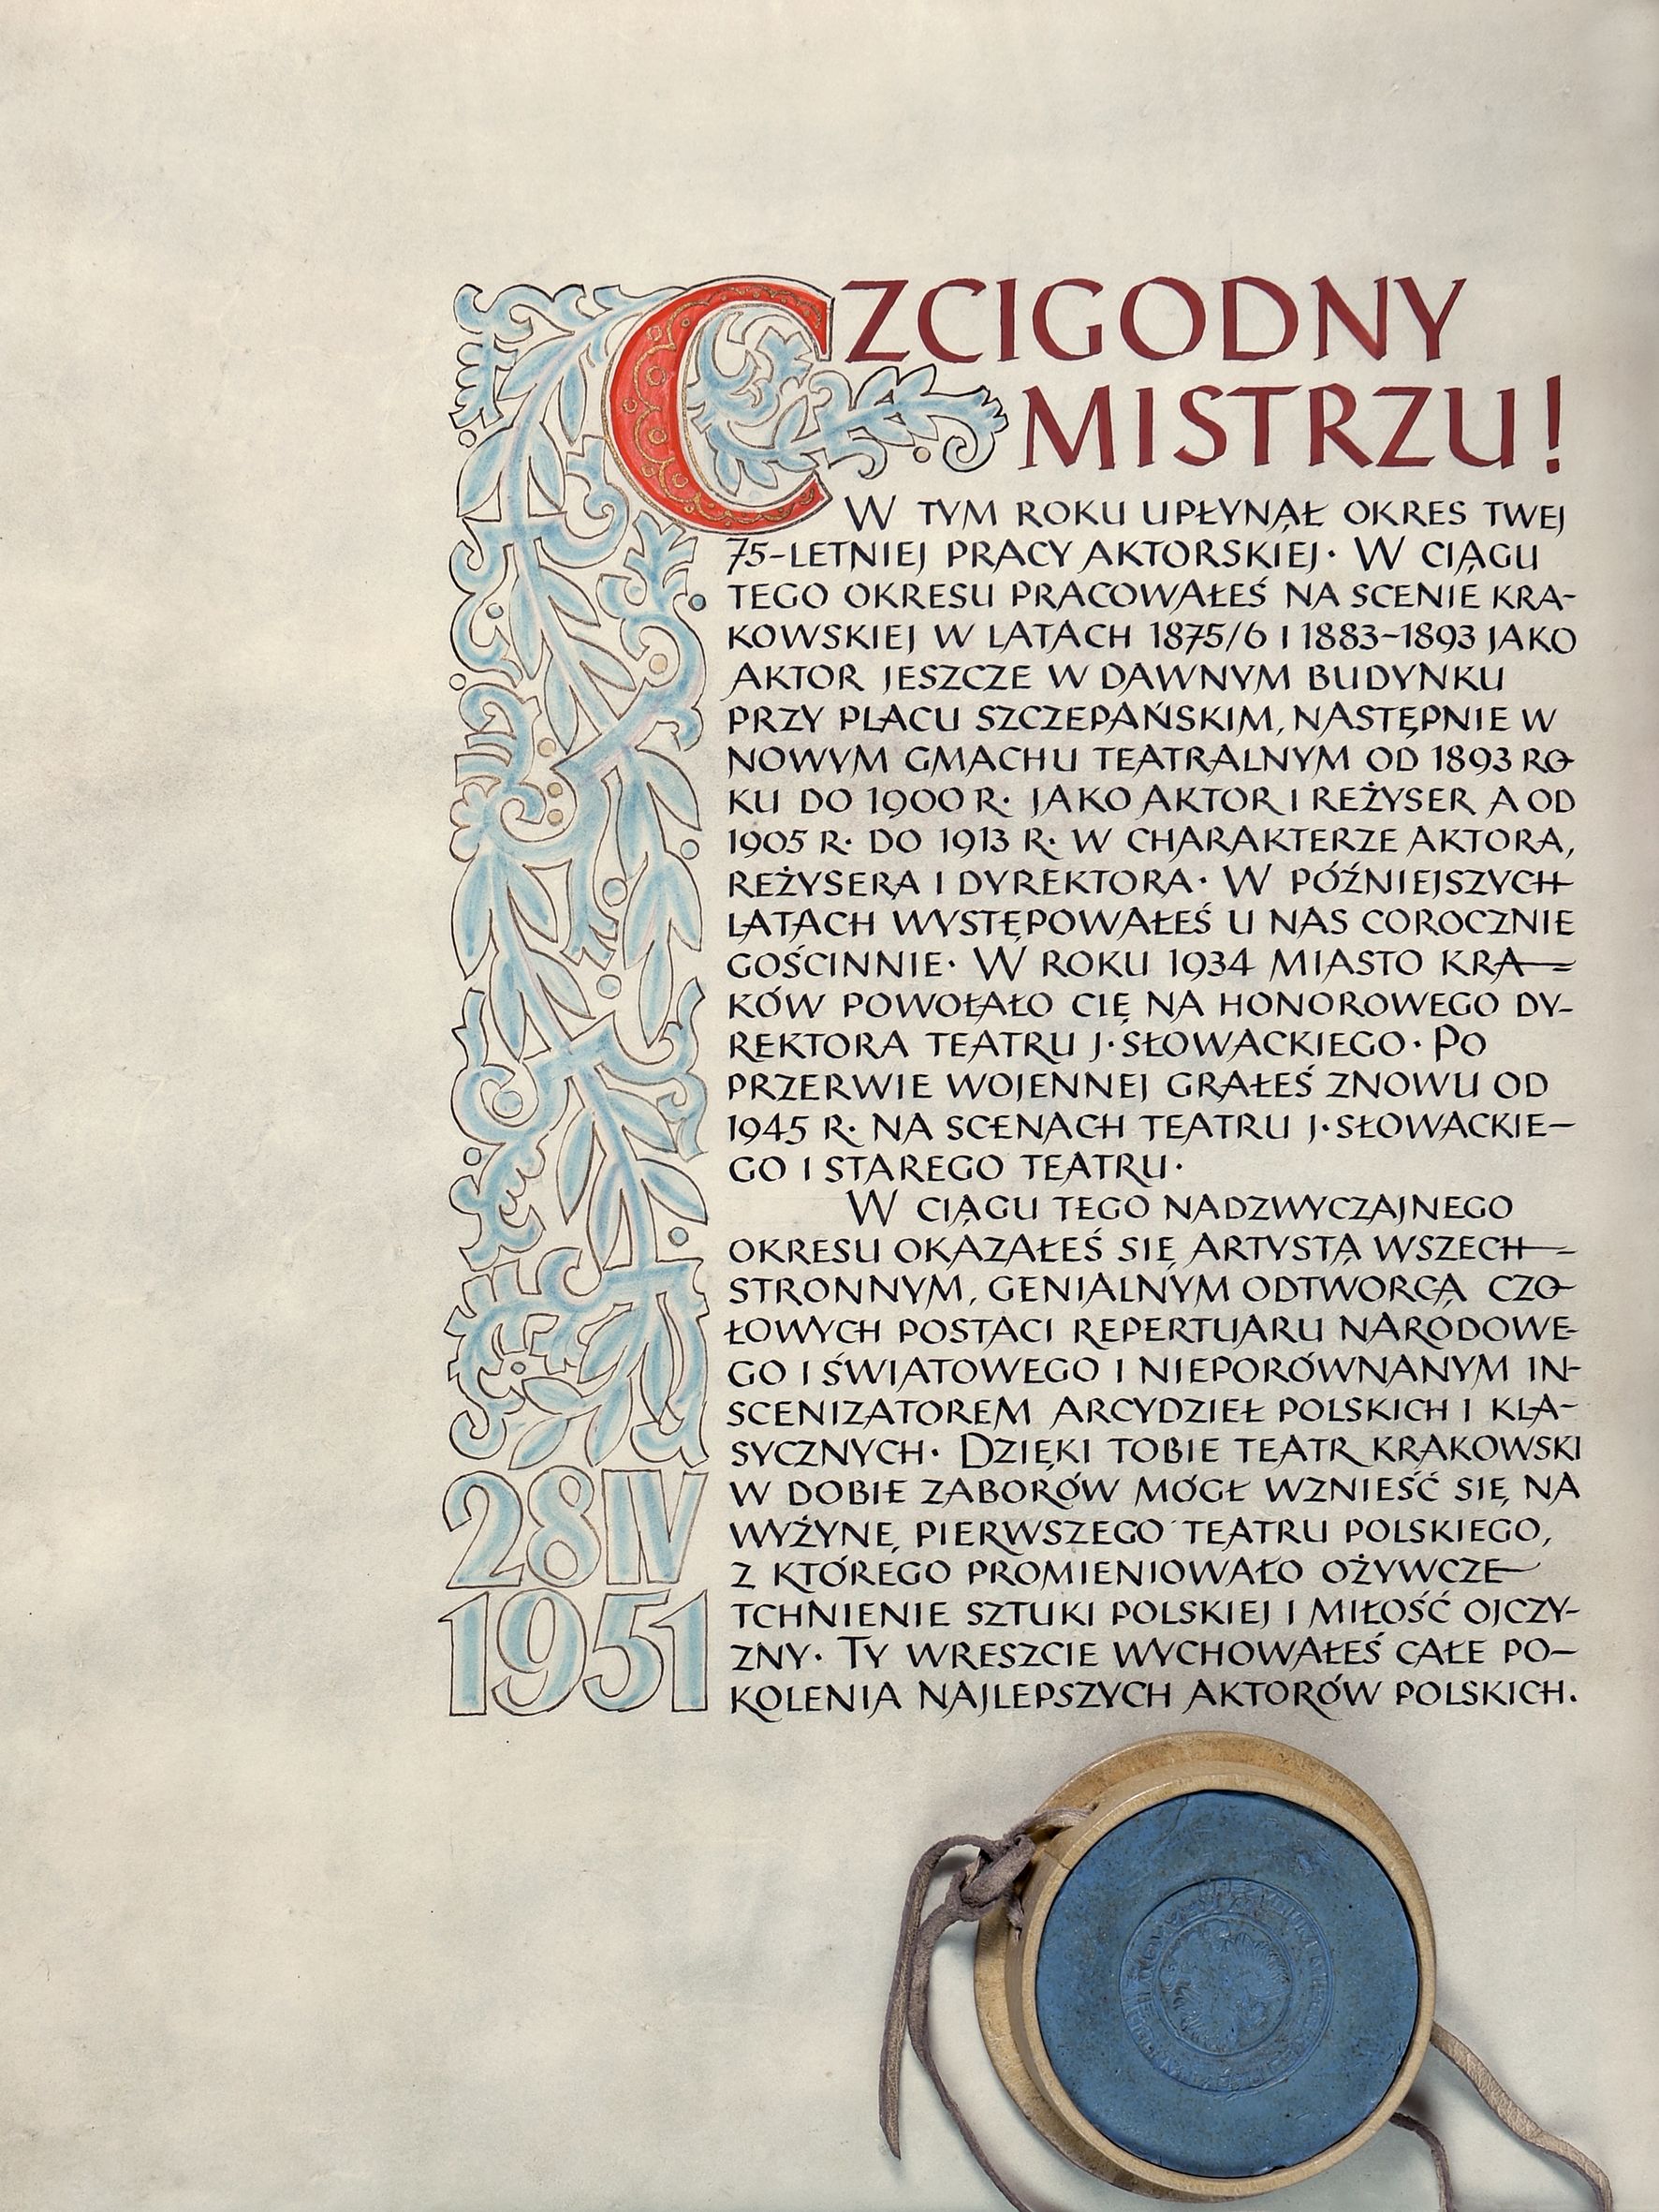 CZCIGODNY
MISTRZU!
W TYM ROKU UPŁYNĄŁ OKRES TWEJ
75-LETNIEJ PRACY AKTORSKIEJ· W CIĄGU
TEGO OKRESU PRACOWAŁEŚ NA SCENIE KRA-
KOWSKIEJ W LATACH 1875/6 I 1883-1893 JAKO
AKTOR JESZCZE W DAWNYM BUDYNKU
PRZY PLACU SZCZEPAŃSKIM, NASTĘPNIE W
NOWYM GMACHU TEATRALNYM OD 1893 RO-
KU DO 1900 R· JAKO AKTOR I REŻYSER A OD
1905 R· DO 1913 R· W CHARAKTERZE AKTORA,
REŻYSERA I DYREKTORA· W PÓŹNIEJSZYCH
LATACH WYSTĘPOWAŁEŚ U NAS COROCZNIE
GOŚCINNIE· W ROKU 1934 MIASTO KRA-
KÓW POWOŁAŁO CIĘ NA HONOROWEGO DY-
REKTORA TEATRU J·SŁOWACKIEGO· PO
PRZERWIE WOJENNEJ GRAŁEŚ ZNOWU OD
1945 R· NA SCENACH TEATRU J·SŁOWACKIE-
GO I STAREGO TEATRU·
W CIĄGU TEGO NADZWYCZAJNEGO
OKRESU OKAZAŁEŚ SIĘ ARTYSTĄ WSZECH-
STRONNYM, GENIALNYM ODTWÓRCĄ CZO-
ŁOWYCH POSTACI REPERTUARU NARODOWE-
GO I ŚWIATOWEGO I NIEPORÓWNANYM IN-
SCENIZATOREM ARCYDZIEŁ POLSKICH I KLA-
SYCZNYCH· DZIĘKI TOBIE TEATR KRAKOWSKI
W DOBIE ZABORÓW MÓGŁ WZNIEŚĆ SIĘ NA
WYŻYNĘ PIERWSZEGO TEATRU POLSKIEGO,
Z KTÓREGO PROMIENIOWAŁO OŻYWCZE
TCHNIENIE SZTUKI POLSKIEJ I MIŁOŚĆ OJCZY-
ZNY· TY WRESZCIE WYCHOWAŁEŚ CAŁE PO-
KOLENIA NAJLEPSZYCH AKTORÓW POLSKICH.
28 IV
1951